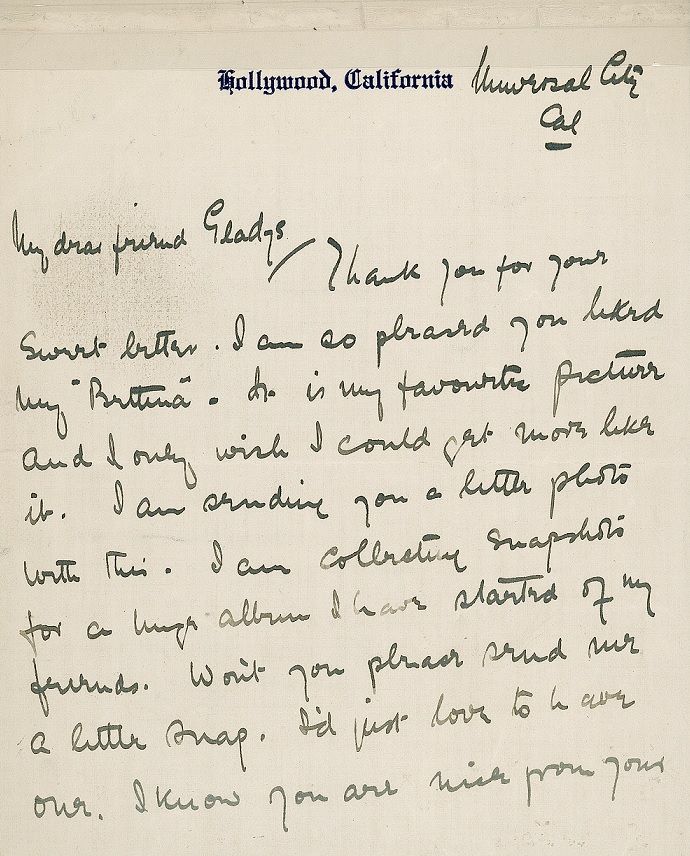 Hollywood, California
Universal City
Cal
My dear friend Gladys
Thank you for your
Sweet letter. I am so pleased you liked
my "Bettina". It is my favourite picture
and I only wish I could get more like
it. I am sending you a little photo
with this. I am collecting snapshots
for a huge album I have started of my
friends. Won't you please send me
a little snap. I'd just love to have
one. I know you are nice from your